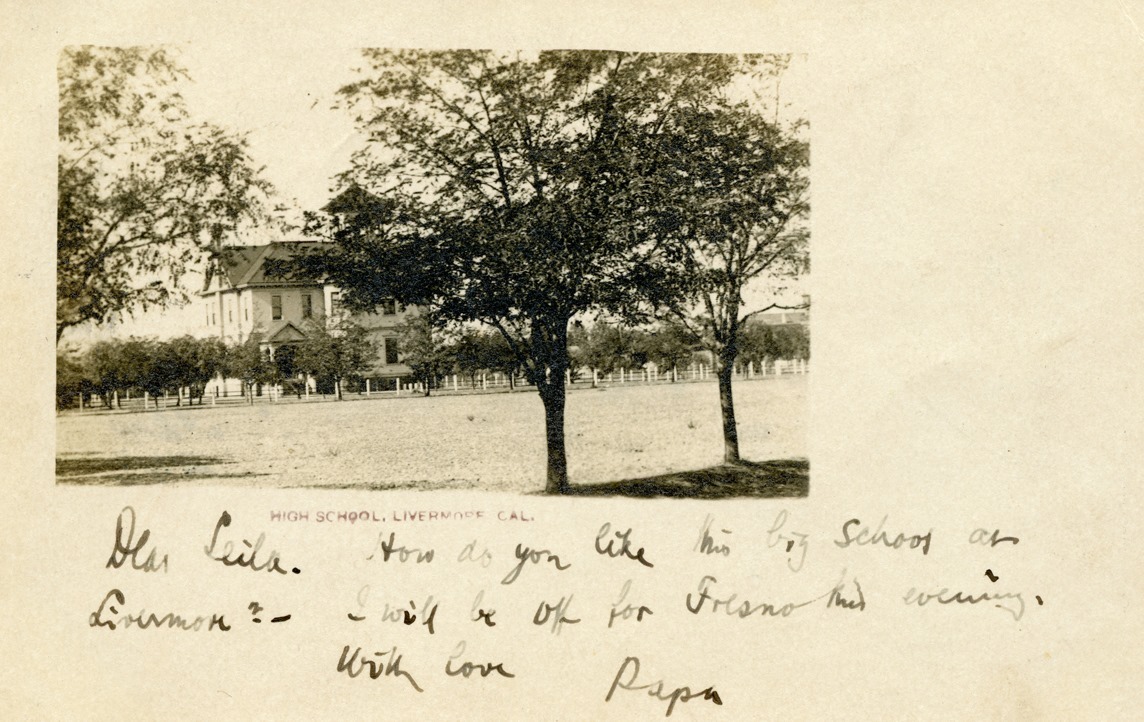 HIGH SCHOOL, LIVERMORE CAL.
Dear Leila. How do you like this big School at
Livermore?- I will be off for Fresno this evening.
With love Papa